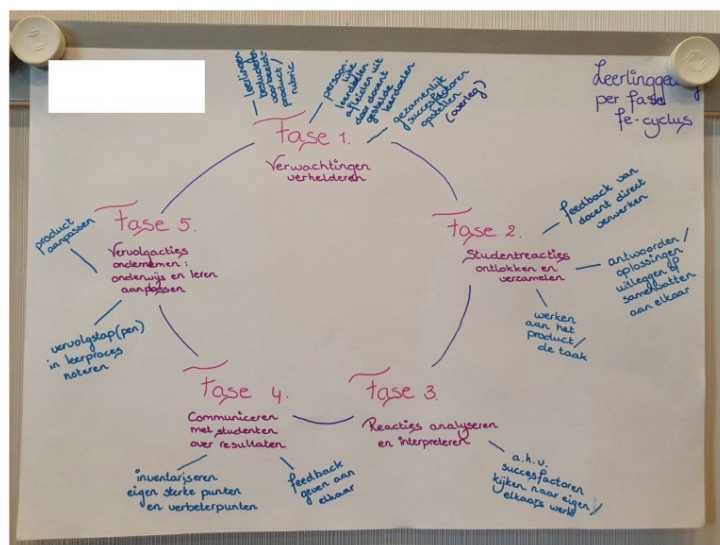 Leerlinggedrag
per fase
fe-cyclus
Fase 1.
Verwachtingen
verhelderen
voorbeeld-
product/
rubric
persoon-
lijke
leerdoelen
afleiden uit
door docent
gestelde
leerdoelen
gezamenlijk
succesfactoren
opstellen
(overleg)
Fase 2.
Studentreacties
ontlokken en
verzamelen
feedback van
docent direct
verwerken
antwoorden/
oplossingen
uitleggen of
samenvatten
aan elkaar
werken
aan het
product/
de taak
Fase 3.
Reacties analyseren
en interpreteren
a.h.v.
succesfactoren
kijken naar eigen/
elkaars werk
Fase 4.
Communiceren
met studenten
over resultaten
feedback
geven aan
elkaar
inventariseren
eigen sterke punten
en verbeterpunten
Fase 5.
Vervolgacties
ondernemen:
onderwijs en leren
aanpassen
product
aanpassen
vervolgstap(pen)
in leerproces
noteren